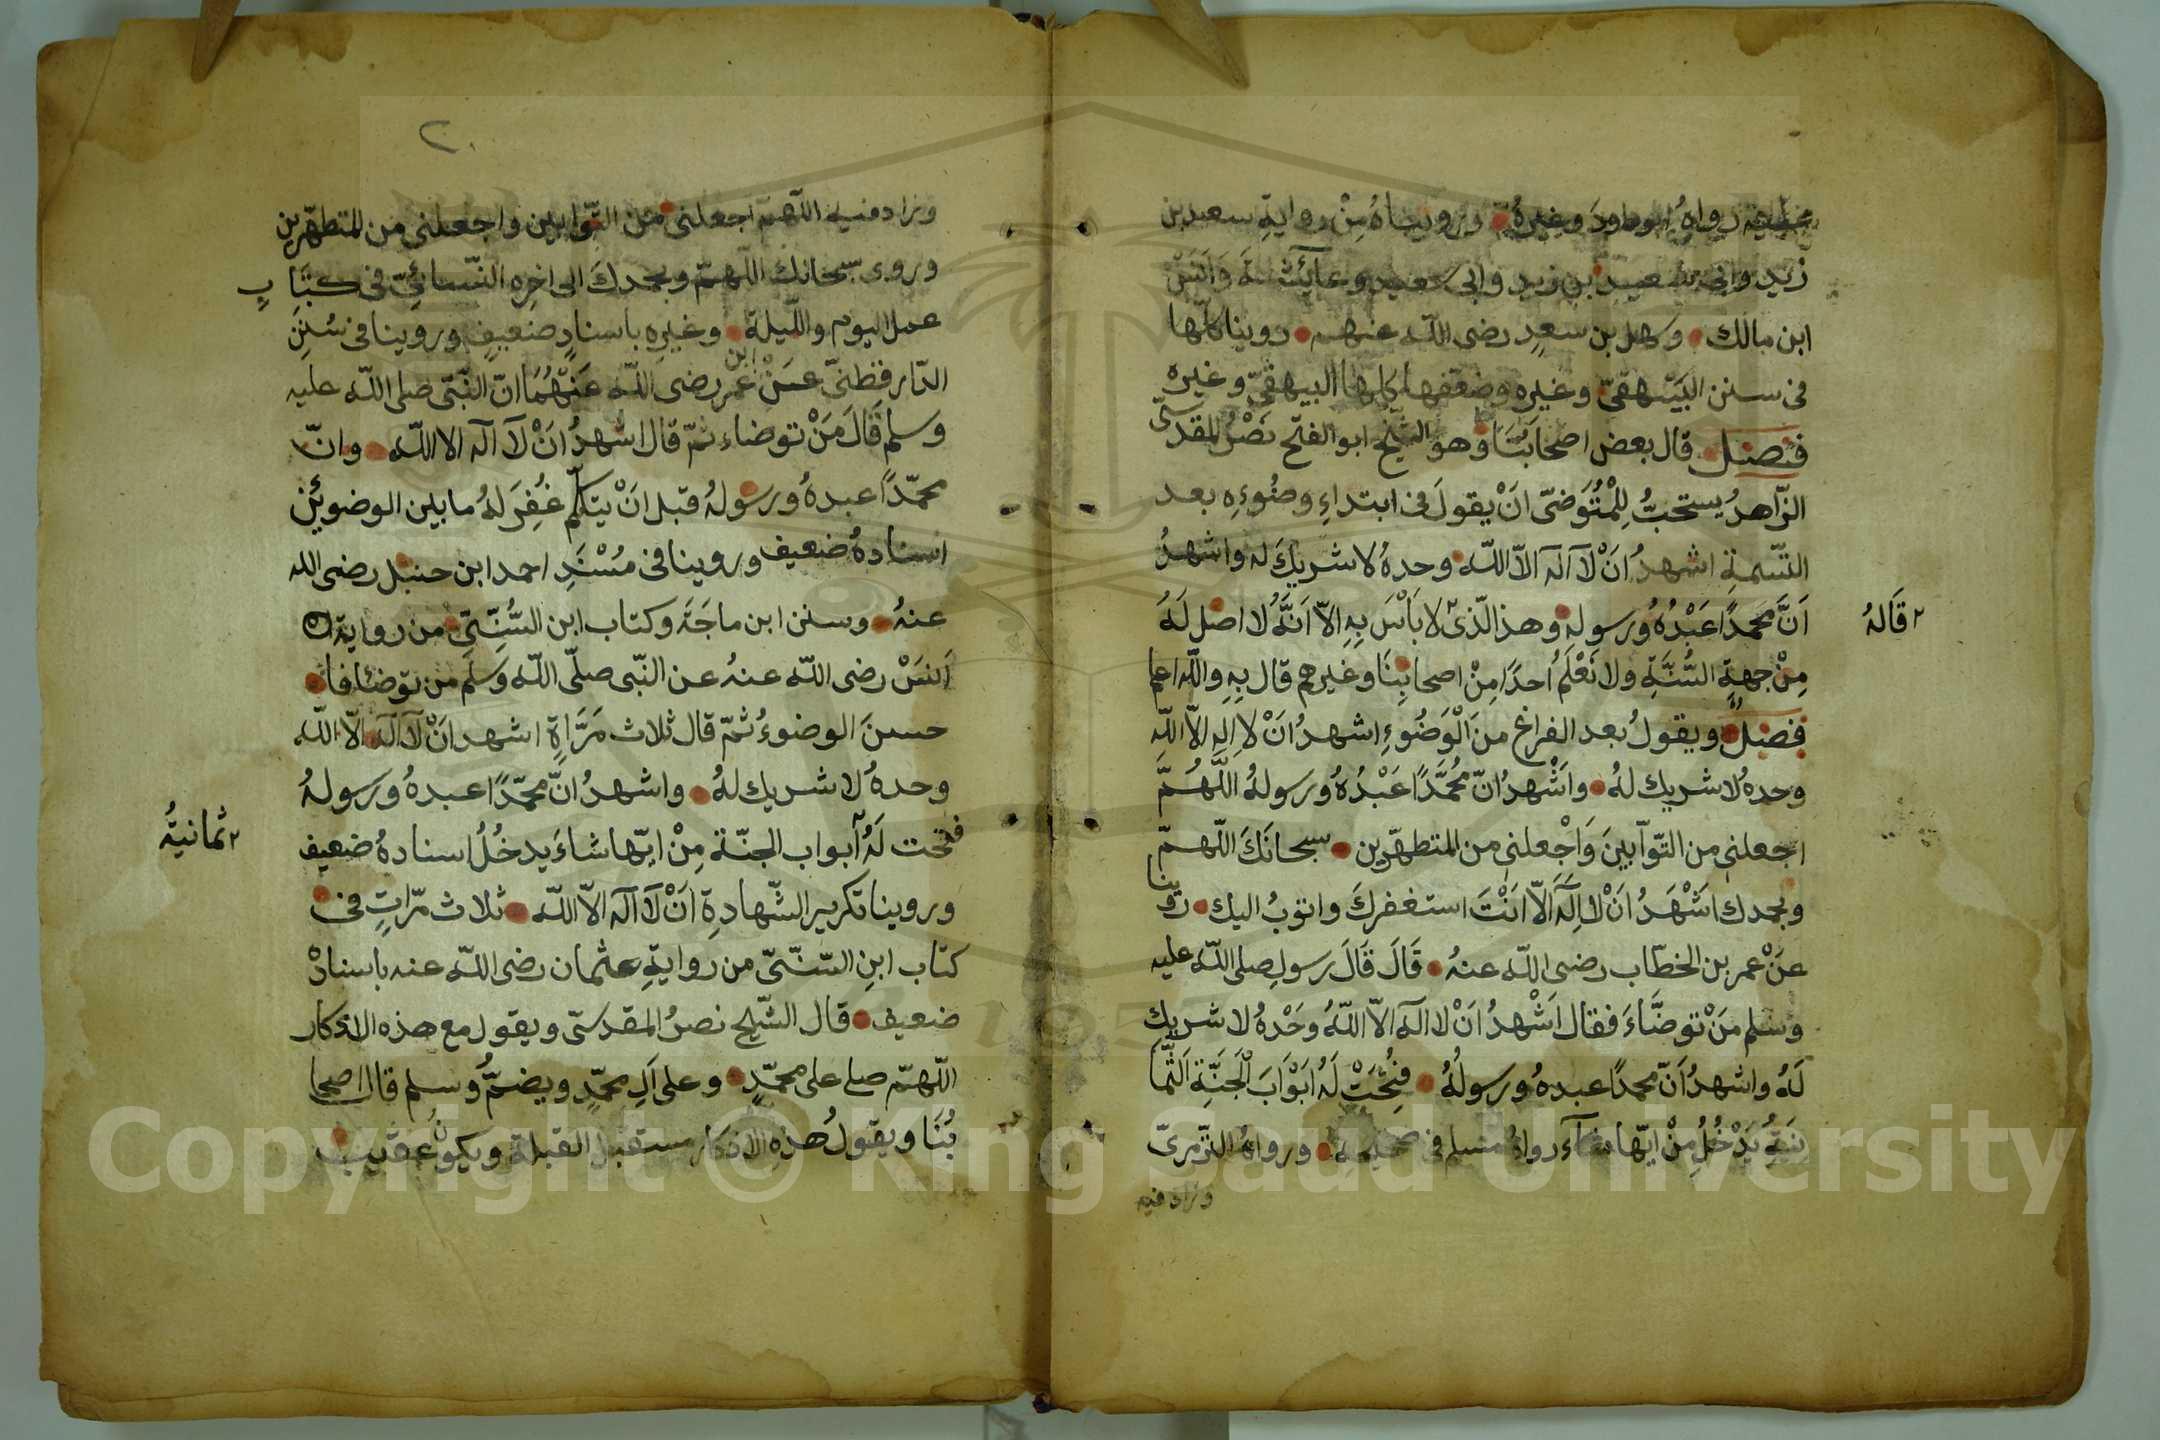 رواه ابو داود وغيره وروينـاهُ مِنْ رواية سعيد بن
زيد وابى سعيد وعآئشة وَاَنَسْ
ابن مالك وسهل بن سعدٍ رضى اللّه عنهم روينا كلّها
فى سنن البَيْهقىّ وغيره وضعّفها كلها البيهقىّ وغيره
فصل قال بعض اصحابنَا وهو الشّيخ ابو الفتح نَصْرُ المقدسىّ
الزّاهدُ يستحبُّ لِلْمُتَوَضّى اَنْ يقولَ فى ابتداءِ وضُوءِه بعد
التّسمية اشهدُ اَنْ لآ آلٓه الّا اللّه وحدهُ لا شريكَ له واشهدُ
اَنَّ محمدًا عَبْدُهُ ورسوله وهذا الّذىْ لا بَاْسَ بِهِ الاّ اَنَّهُ لا اصلَ لَهُ
٢ قَالهُ
مِنْ جهةِ السُّنَّةِ ولا نَعْلَمُ اَحدًا مِنْ اصحابِنَا وغيرهم قال بِهِ واللّه اعلم
فصلٌ ويقولُ بعد الفراغ منَ الْوَضُوءِ اشهدُ اَنْ لا اِله الاّ اللّه
وحدهُ لا شريك لهُ واَشْهدُ انّ مُحَمَّدًا عَبْدُهُ ورسولهُ اللَّهُمَّ
اجعلنى من التّوّابينَ وَاَجْعلنى من المتطهّرين سبحانَكَ اللّهمّ
وبحمدك اَشْهَدُ اَنْ لآ اِلٓهَ اَلاّ اَنْتَ استغفركَ واتوبُ اليك روينا
عَنْ عمر بن الخطّاب رضى اللّه عنهُ قَالَ قَالَ رسولِ صلى اللّه عليه
وسلم مَنْ توضَّاءَ فقال اَشْهدُ اَنْ لا آلٓه الاّ اللّهُ وَحْدهُ لا شريك
لَهُ واشهدُ اَنّ محمدًا عبدهُ ورسولُهُ فُتِحَتْ لَهُ اَبْوَابَ الْجَنَّةِ الثَّمَا
نيَةُ يَدْخُلُ مِنْ ايّها شآء رواهُ مسلم فى صحيحه ورواهُ الترمزىّ
وزاد فيه
٢٠
وزاد فيه اللّهمّ اجعلنى من التّوّابين واجعلنى من المتطهّرين
وروى سبحانك اللّهمّ وبحمدكَ الى اخِره النّسائىّ فى كتَابِ
عمل اليوم واللّيلة وغيرِه باسنادٍ ضعيفٍ وروينا فى سُنَنِ
الدّارقطنىّ عَنْ ابن عمر رضى اللّه عَنْهُمَا انّ النّبّى صلى اللّه عليه
وسلم قَالَ مَنْ توضاء ثمّ قال اشهدُ انَْ لآ آلٓه الا اللّه وانّ
محمّدًا عبدهُ ورسولهُ قبل انَْ يتكلّم غُفِرَ لهُ ما بين الوضوئين
اسنادهُ ضعيف وروينا فى مُسْنَدِ احمد ابن حنبل رضى الله
عنهُ وسنن ابن ماجَة وكتاب ابن السُّنّىِّ من رواية
اَنسَْ رضى اللّه عنهُ عن النّبى صلّى اللّه وَسَلّم من توضّا فا
حسنَ الوضوءُ ثمّ قال ثلاث مَرَّاةٍ اشهد انَْ لآ آلٓه الاّ اللّه
وحدهُ لا شريك لهُ واشهدُ انَّ محمّدًا عبدهُ ورسولهُ
فتحت لَهُ اَبواب الجنّة مِنْ ايّها شاءَ يدخُلُ اسنادهُ ضعيف
٢ ثمانيةُ
وروينا تكرير الشّهادةِ اَنْ لآ آلٓه الاّ اللّه ثلاث مرّاتٍ فى
كتاب ابنِ السّنّىّ من روايةِ عثمان رضى اللّه عنه باسنادْ
ضعيف قال الشّيخ نصرُ المقدسىّ ويقول مع هذه الاذكار
اللّهمّ صل على محمّدٍ وعلى اَلِ محمّدٍ ويضمُّ وسلم قال اصحا
بُنَا ويقولُ هٰذِهِ الاذكار مستقبل القبلة ويكونُ عقيب
Copyright © King Saud University
1957